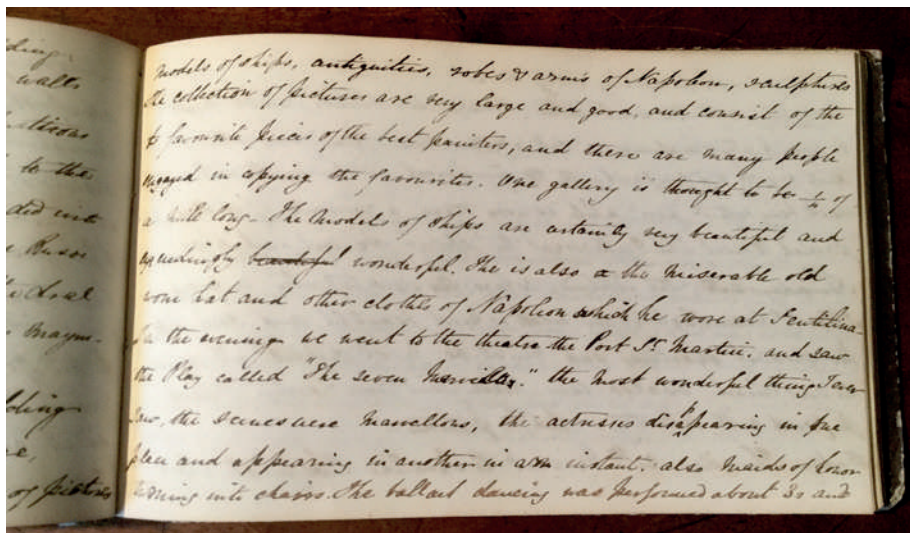 ding
walls
to the
ded into
Russ
dral
Maym-
lding
of pictures
models of ships, antiquities, robes & arms of Napoleon, sculptures
the collection of pictures are very large and good, and consist of the
favourite pieces of the best painters, and there are many people
engaged in copying the favourites. One gallery is thought to be ¼ of
a mile long. The models of ships are certainly very beautiful and
exceedingly beautiful wonderful. The is also a the miserable old
worn hat and other clothes of Napoleon which he wore at Sentilina
In the evening we went to the theatre the Port St. Martin. and saw
the Play called "The seven Mervilles." the most wonderful thing I ever
saw, the scenes were marvellous, the actresses disappearing in one
place and appearing in another in an instant. also Maids of honor
turning into chairs. The ballet dancing was performed about 30 and